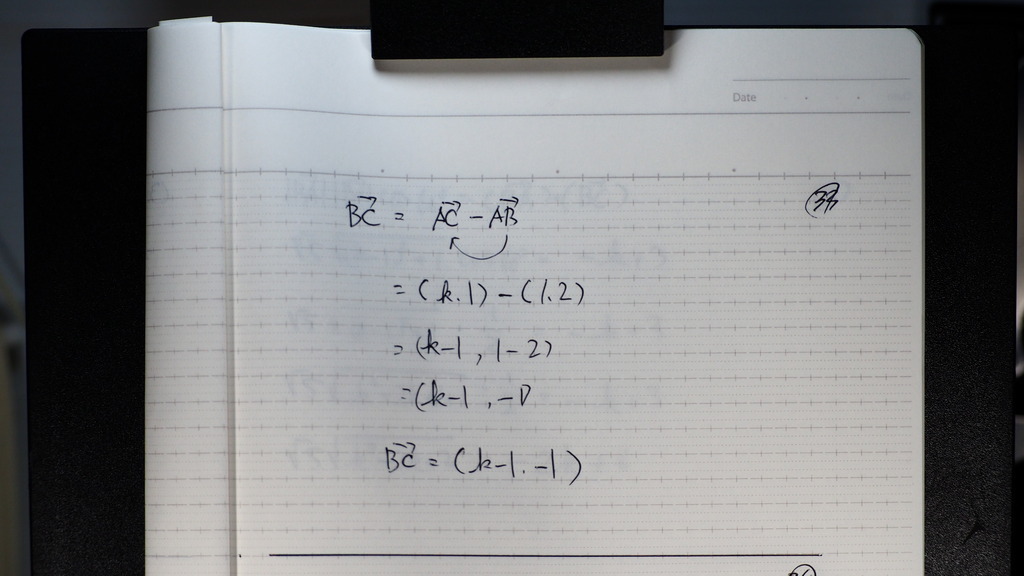 Date
33
BC→ = AC→ - AB→
= (k.1) - (1.2)
= (k-1, 1-2)
= (k-1, -1)
BC→ = (k-1. -1)